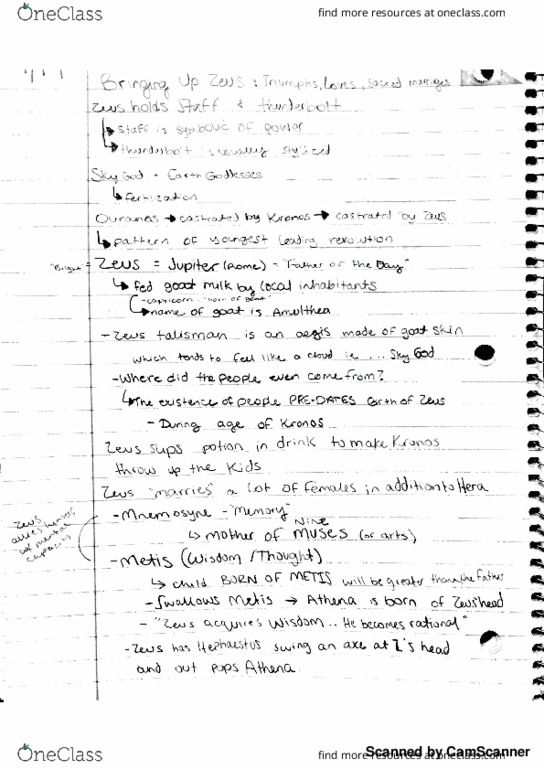 OneClass
find more resources at oneclass.com
Bringing Up Zeus: Triumphs, Loves, Sacred marriages
Zeus holds Staff & thunderbolt
↳ staff is symbolic of power
↳ thunderbolt is usually stylized
Sky God - Earth Goddesses
↳ fertilization
Ouranos → castrated by Kronos → castrated by Zeus
↳ pattern of youngest leading revolution
"Bright" = Zeus = Jupiter (Rome) = "Father of the Day"
↳ fed goat milk by local inhabitants
- capricorn "horn of goat"
↳ name of goat is Amalthea
- Zeus talisman is an aegis made of goat skin
which tends to feel like a cloud ie ... Sky God
- Where did the people even come from?
↳ The existence of people PRE-DATES birth of Zeus
- During age of Kronos
Zeus slips potion in drink to make Kronos
throw up the kids
Zeus "marries" a lot of females in addition to Hera
- Mnemosyne - "Memory"
Nine
↳ mother of muses (of arts)
Zeus
w/ mental
- Metis (Wisdom/Thought)
↳ child BORN OF METIS will be greater than the father
- Swallows Metis → Athena is born of Zeus' head
- "Zeus acquires Wisdom.. He becomes rational"
- Zeus has Hephaestus swing an axe at Z's head
and out pops Athena
OneClass
find more resources at oneclass.com
Scanned by CamScanner